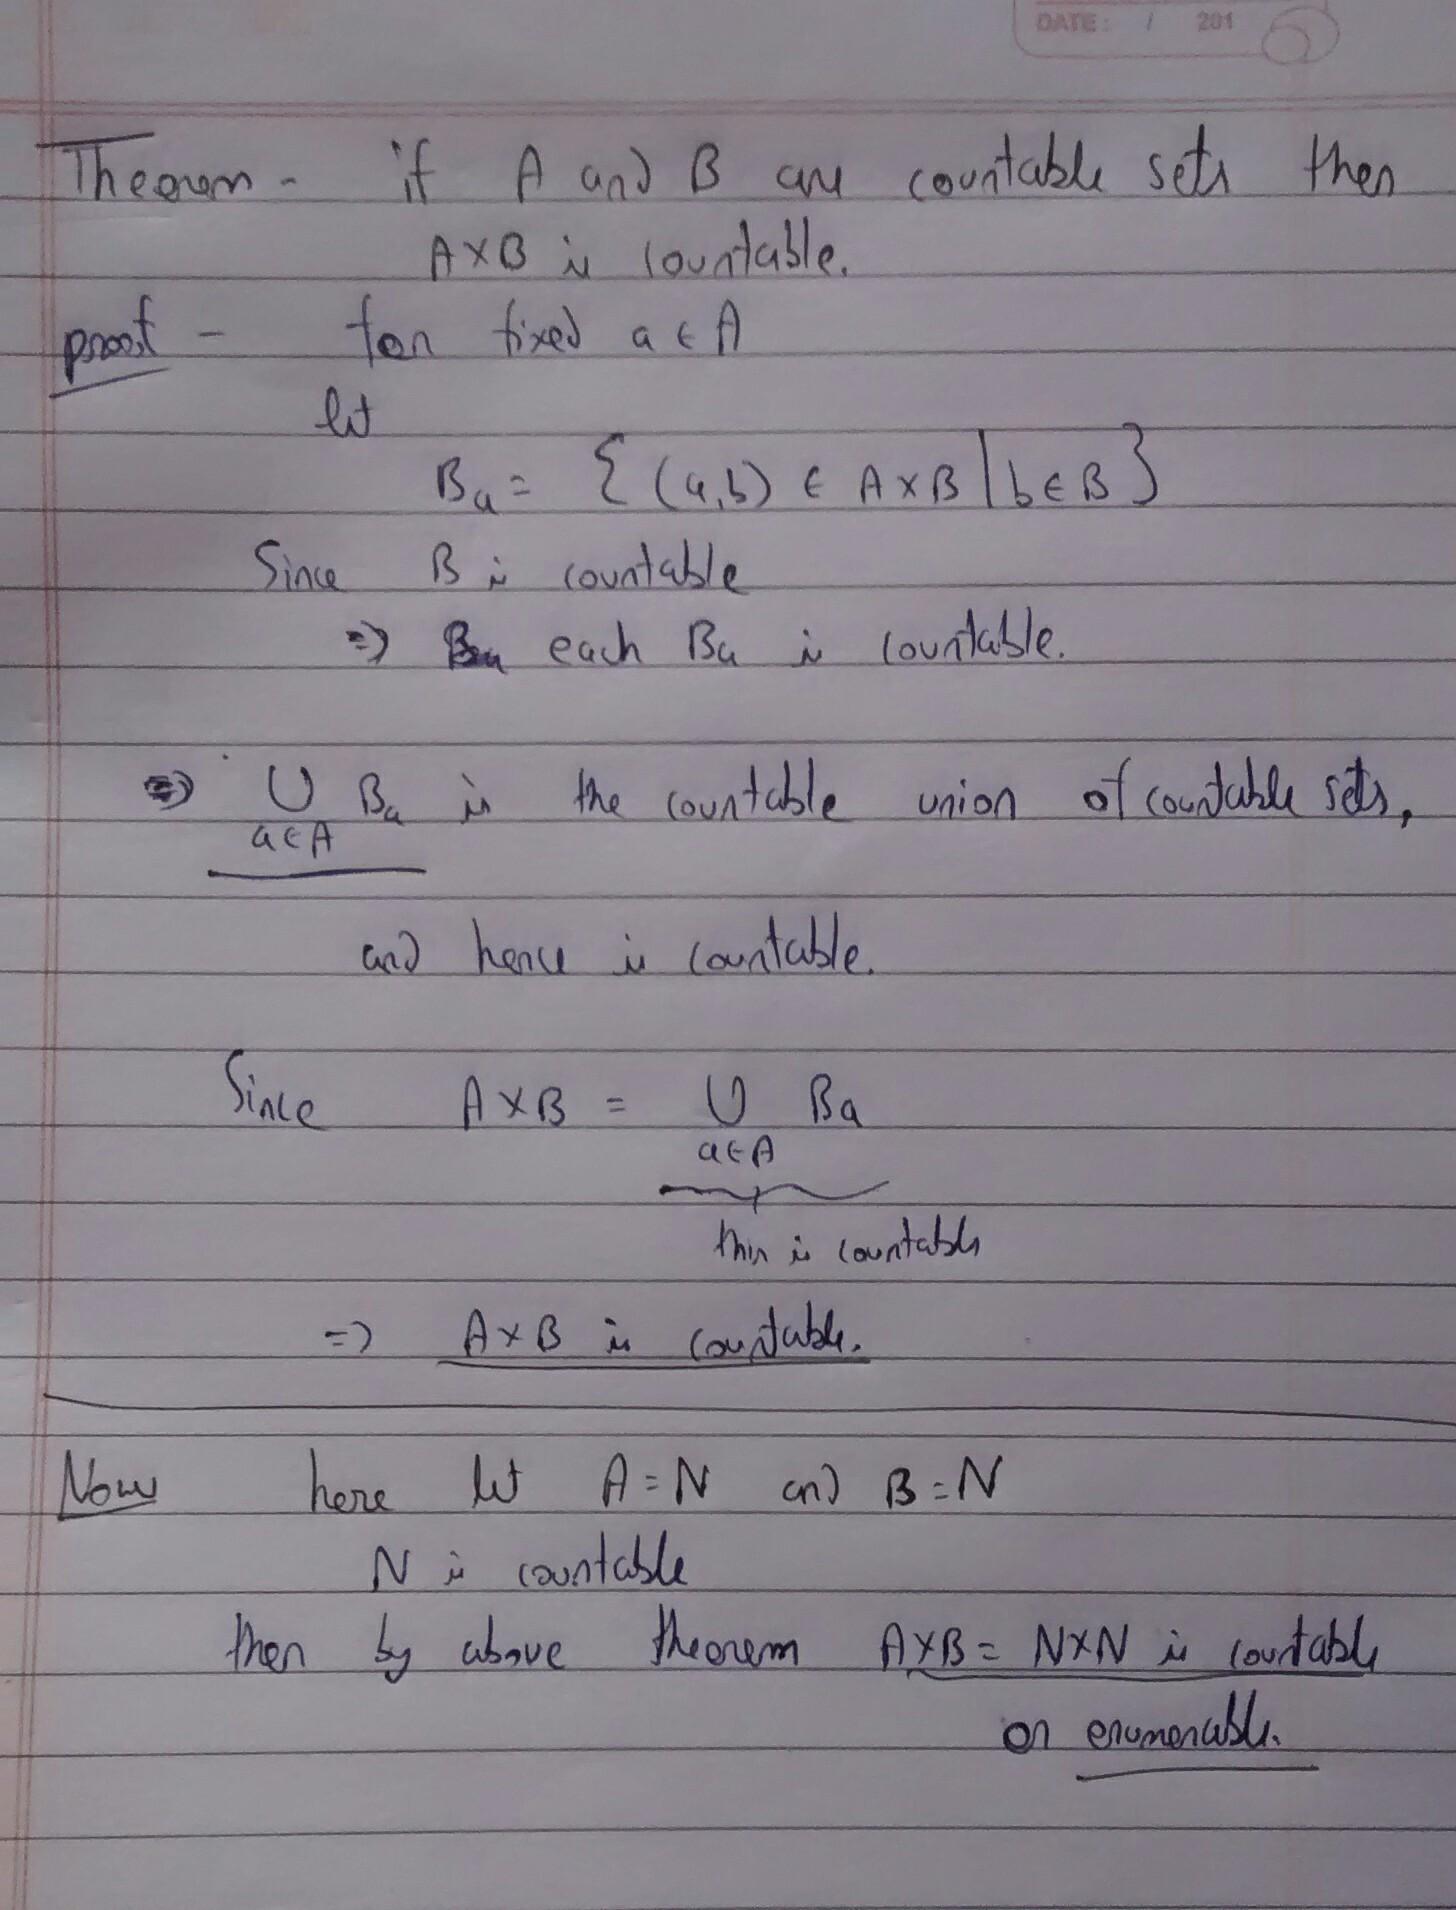 DATE: / 201
Theorem - if A and B are countable sets then
A×B is countable.
proof - for fixed a ∈ A
let
Ba = { (a,b) ∈ A×B | b ∈ B }
Since B is countable
=> each Ba is countable.
=> ∪ Ba is the countable union of countable sets,
a∈A
and hence is countable.
Since A×B = ∪ Ba
a∈A
this is countable
=> A×B is countable.
Now here let A=N and B=N
N is countable
then by above theorem A×B = N×N is countable
or enumerable.